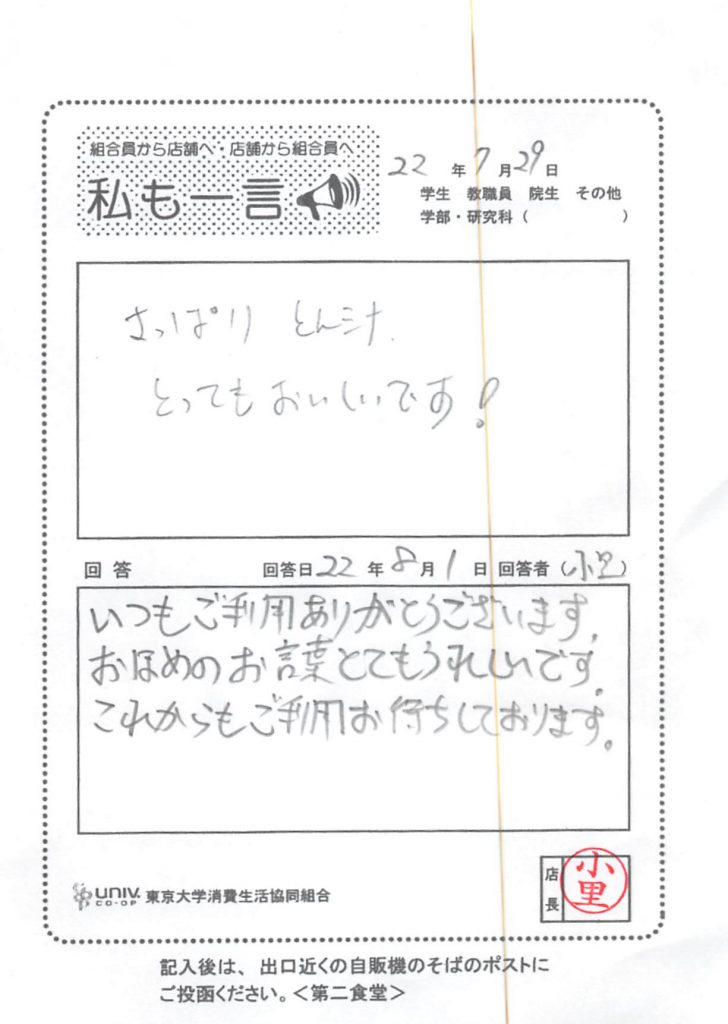 組合員から店舗へ・店舗から組合員へ
私も一言
22年7月29日
学生 教職員 院生 その他
学部・研究科（ ）
さっぱり とん汁、
とってもおいしいです！
回答 回答日22年8月1日 回答者（小里）
いつもご利用ありがとうございます。
おほめのお言葉とてもうれしいです。
これからもご利用お待ちしております。
UNIV.
CO-OP
東京大学消費生活協同組合
店長
小里
記入後は、出口近くの自販機のそばのポストに
ご投函ください。＜第二食堂＞